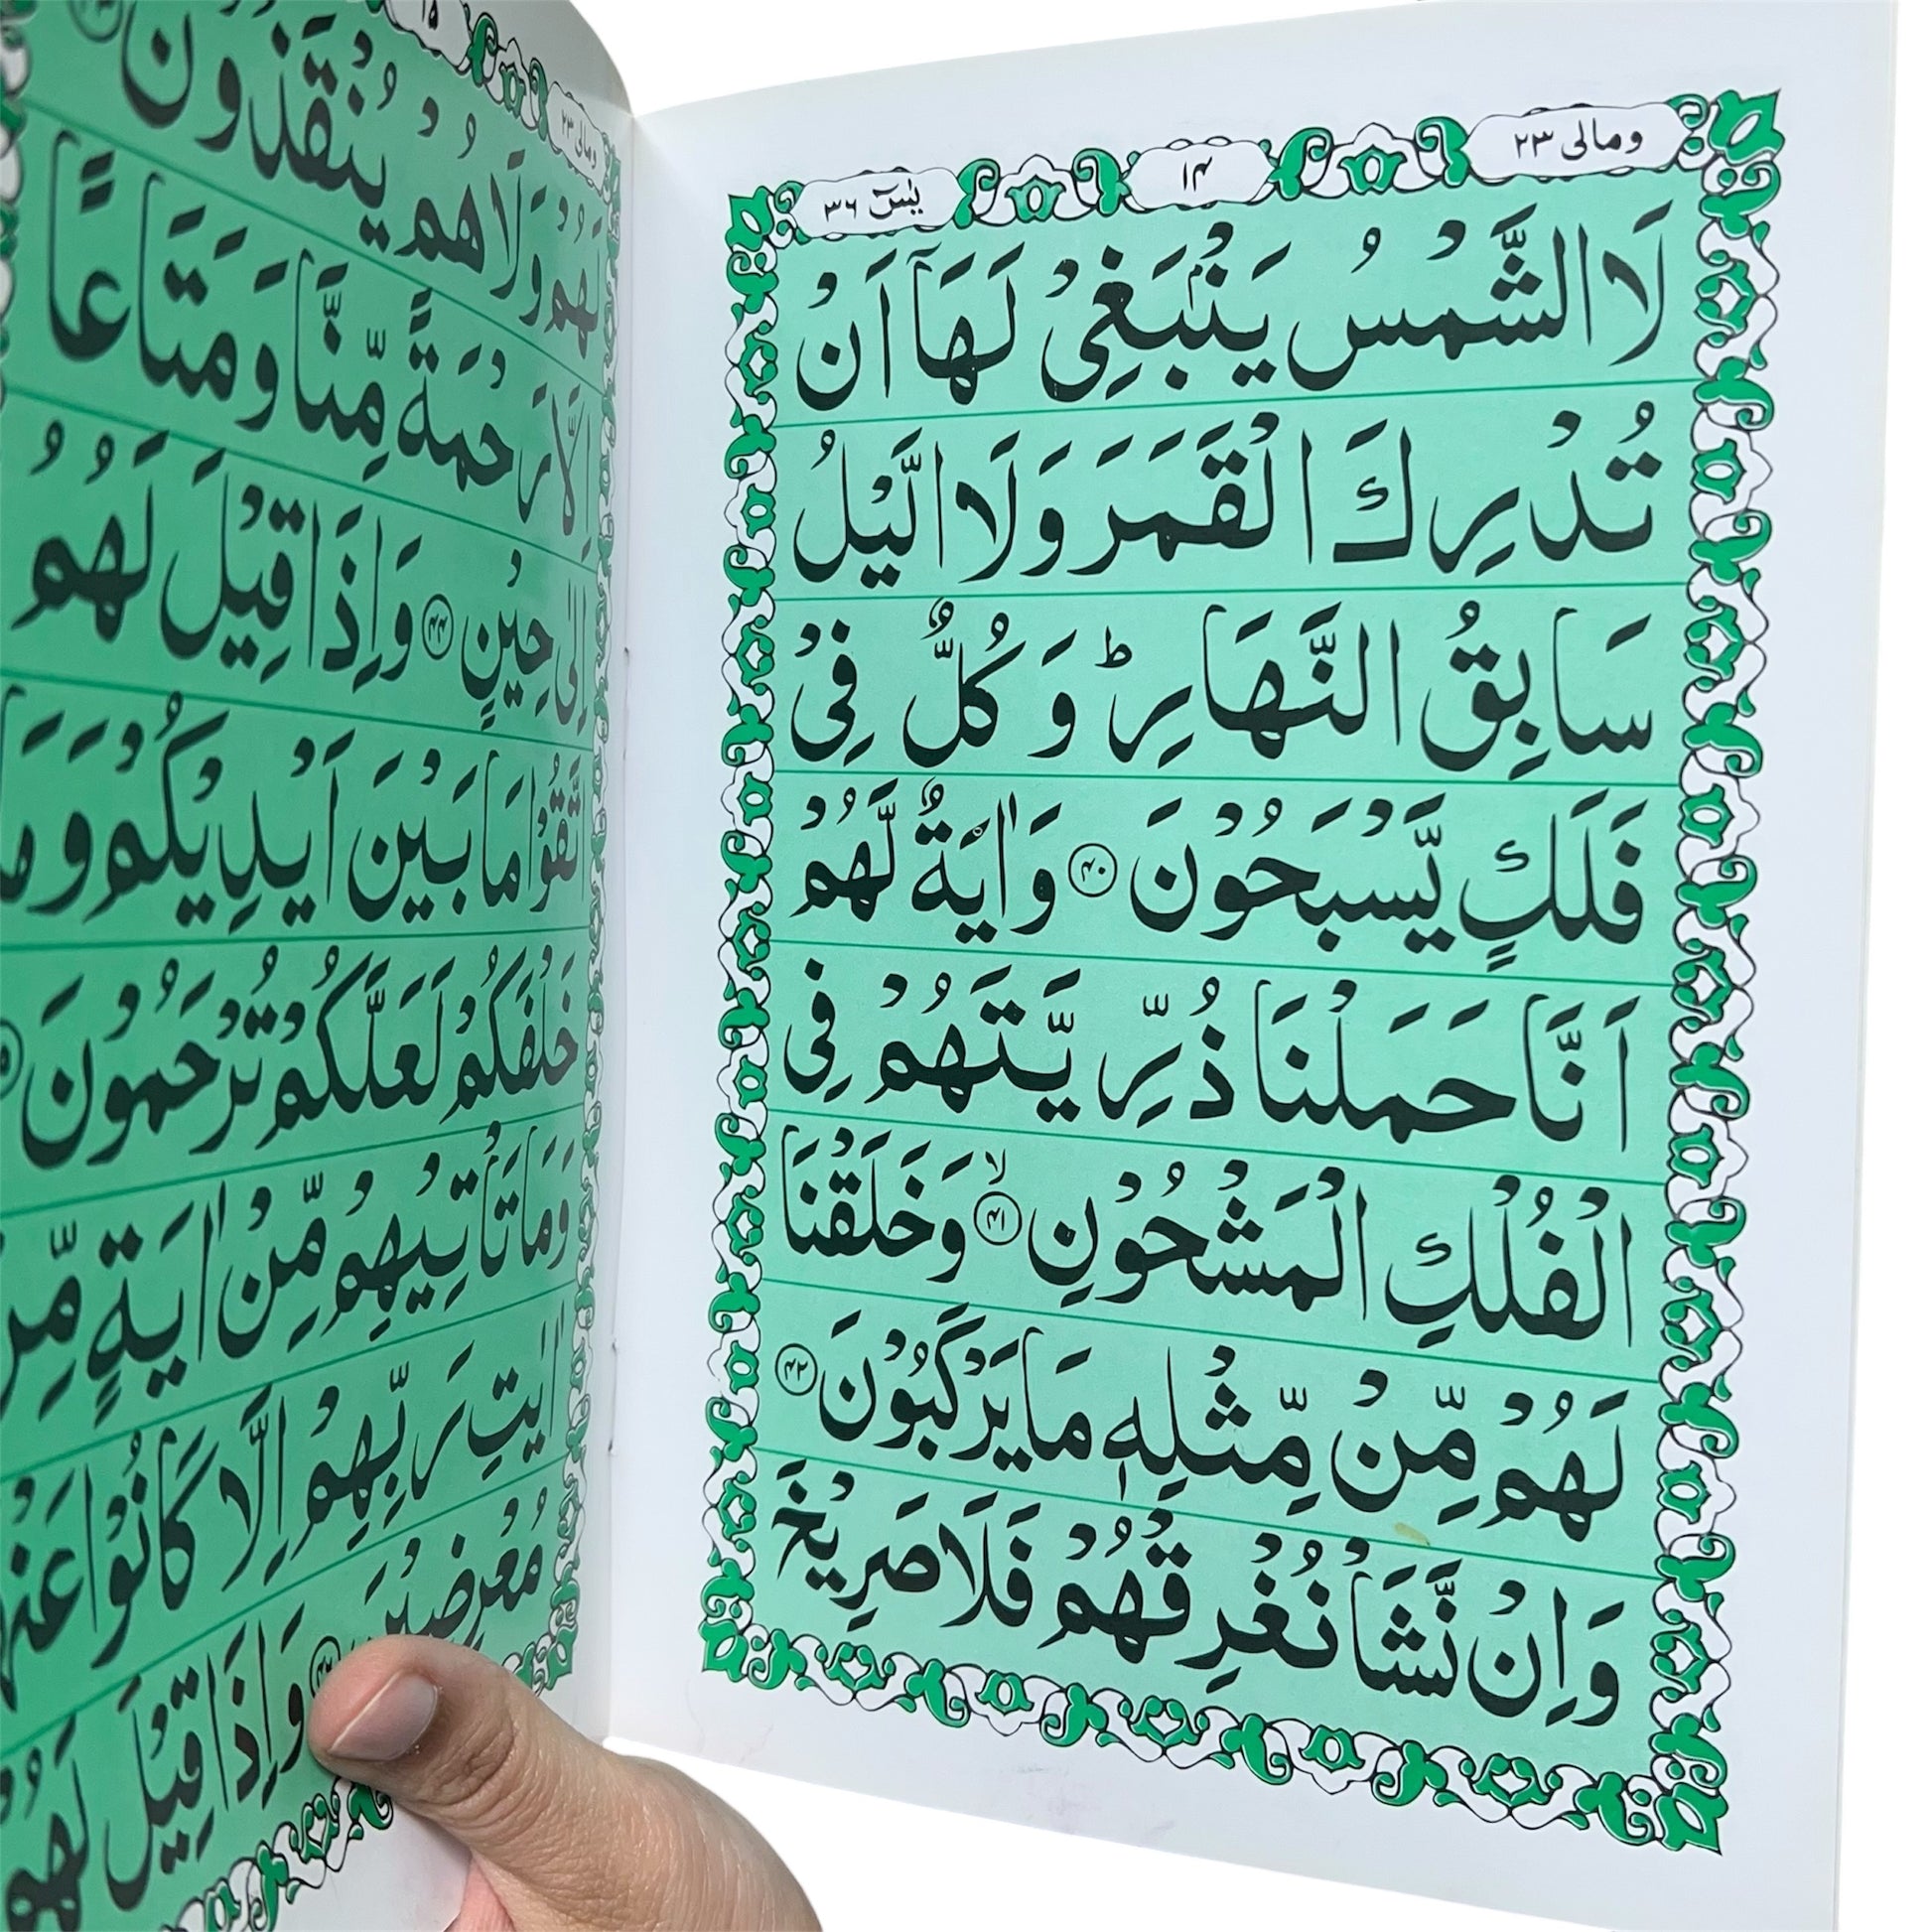 ومالی ۲۳
۱۴
یٰسٓ ۳۶
لَا الشَّمْسُ یَنْۢبَغِیْ لَهَاۤ اَنْ
تُدْرِكَ الْقَمَرَ وَلَا الَّیْلُ
سَابِقُ النَّهَارِ ؕ وَ كُلٌّ فِیْ
فَلَكٍ یَّسْبَحُوْنَ ۴۰ وَ اٰیَةٌ لَّهُمْ
اَنَّا حَمَلْنَا ذُرِّیَّتَهُمْ فِی
الْفُلْكِ الْمَشْحُوْنِ ۴۱ ۙ وَخَلَقْنَا
لَهُمْ مِّنْ مِّثْلِهٖ مَا یَرْكَبُوْنَ ۴۲
وَاِنْ نَّشَاْ نُغْرِقْهُمْ فَلَا صَرِیْخَ
ومالی ۲۳
۱۵
لَهُمْ وَلَا هُمْ یُنْقَذُوْنَ
اِلَّا رَحْمَةً مِّنَّا وَمَتَاعًا
اِلٰی حِیْنٍ ۴۴ وَاِذَا قِیْلَ لَهُمُ
اتَّقُوْا مَا بَیْنَ اَیْدِیْكُمْ وَمَا
خَلْفَكُمْ لَعَلَّكُمْ تُرْحَمُوْنَ
وَمَا تَاْتِیْهِمْ مِّنْ اٰیَةٍ مِّنْ
اٰیٰتِ رَبِّهِمْ اِلَّا كَانُوْا عَنْهَا
مُعْرِضِیْنَ وَاِذَا قِیْلَ لَهُمْ